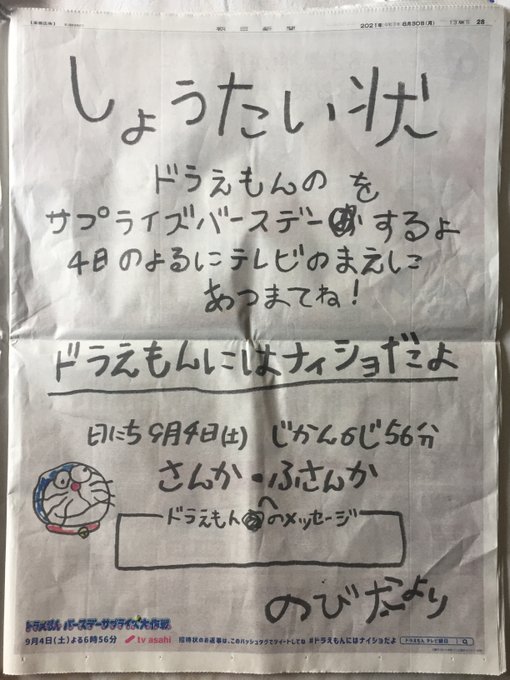 朝日新聞
2021年
(月)
28
しょうたい状
ドラえもんの を
サプライズバースデー するよ
4日のよるにテレビのまえに
あつまてね！
ドラえもんにはナイショだよ
日にち 9月4日(土) じかん6じ56分
さんか・ふさんか
ドラえもん へ のメッセージ
のび太より
ドラえもん バースデーサプライズ大作戦
9月4日(土)よる6時56分
tv asahi
招待状のお返事は、このハッシュタグでツイートしてね #ドラえもんにはナイショだよ
ドラえもん テレビ朝日